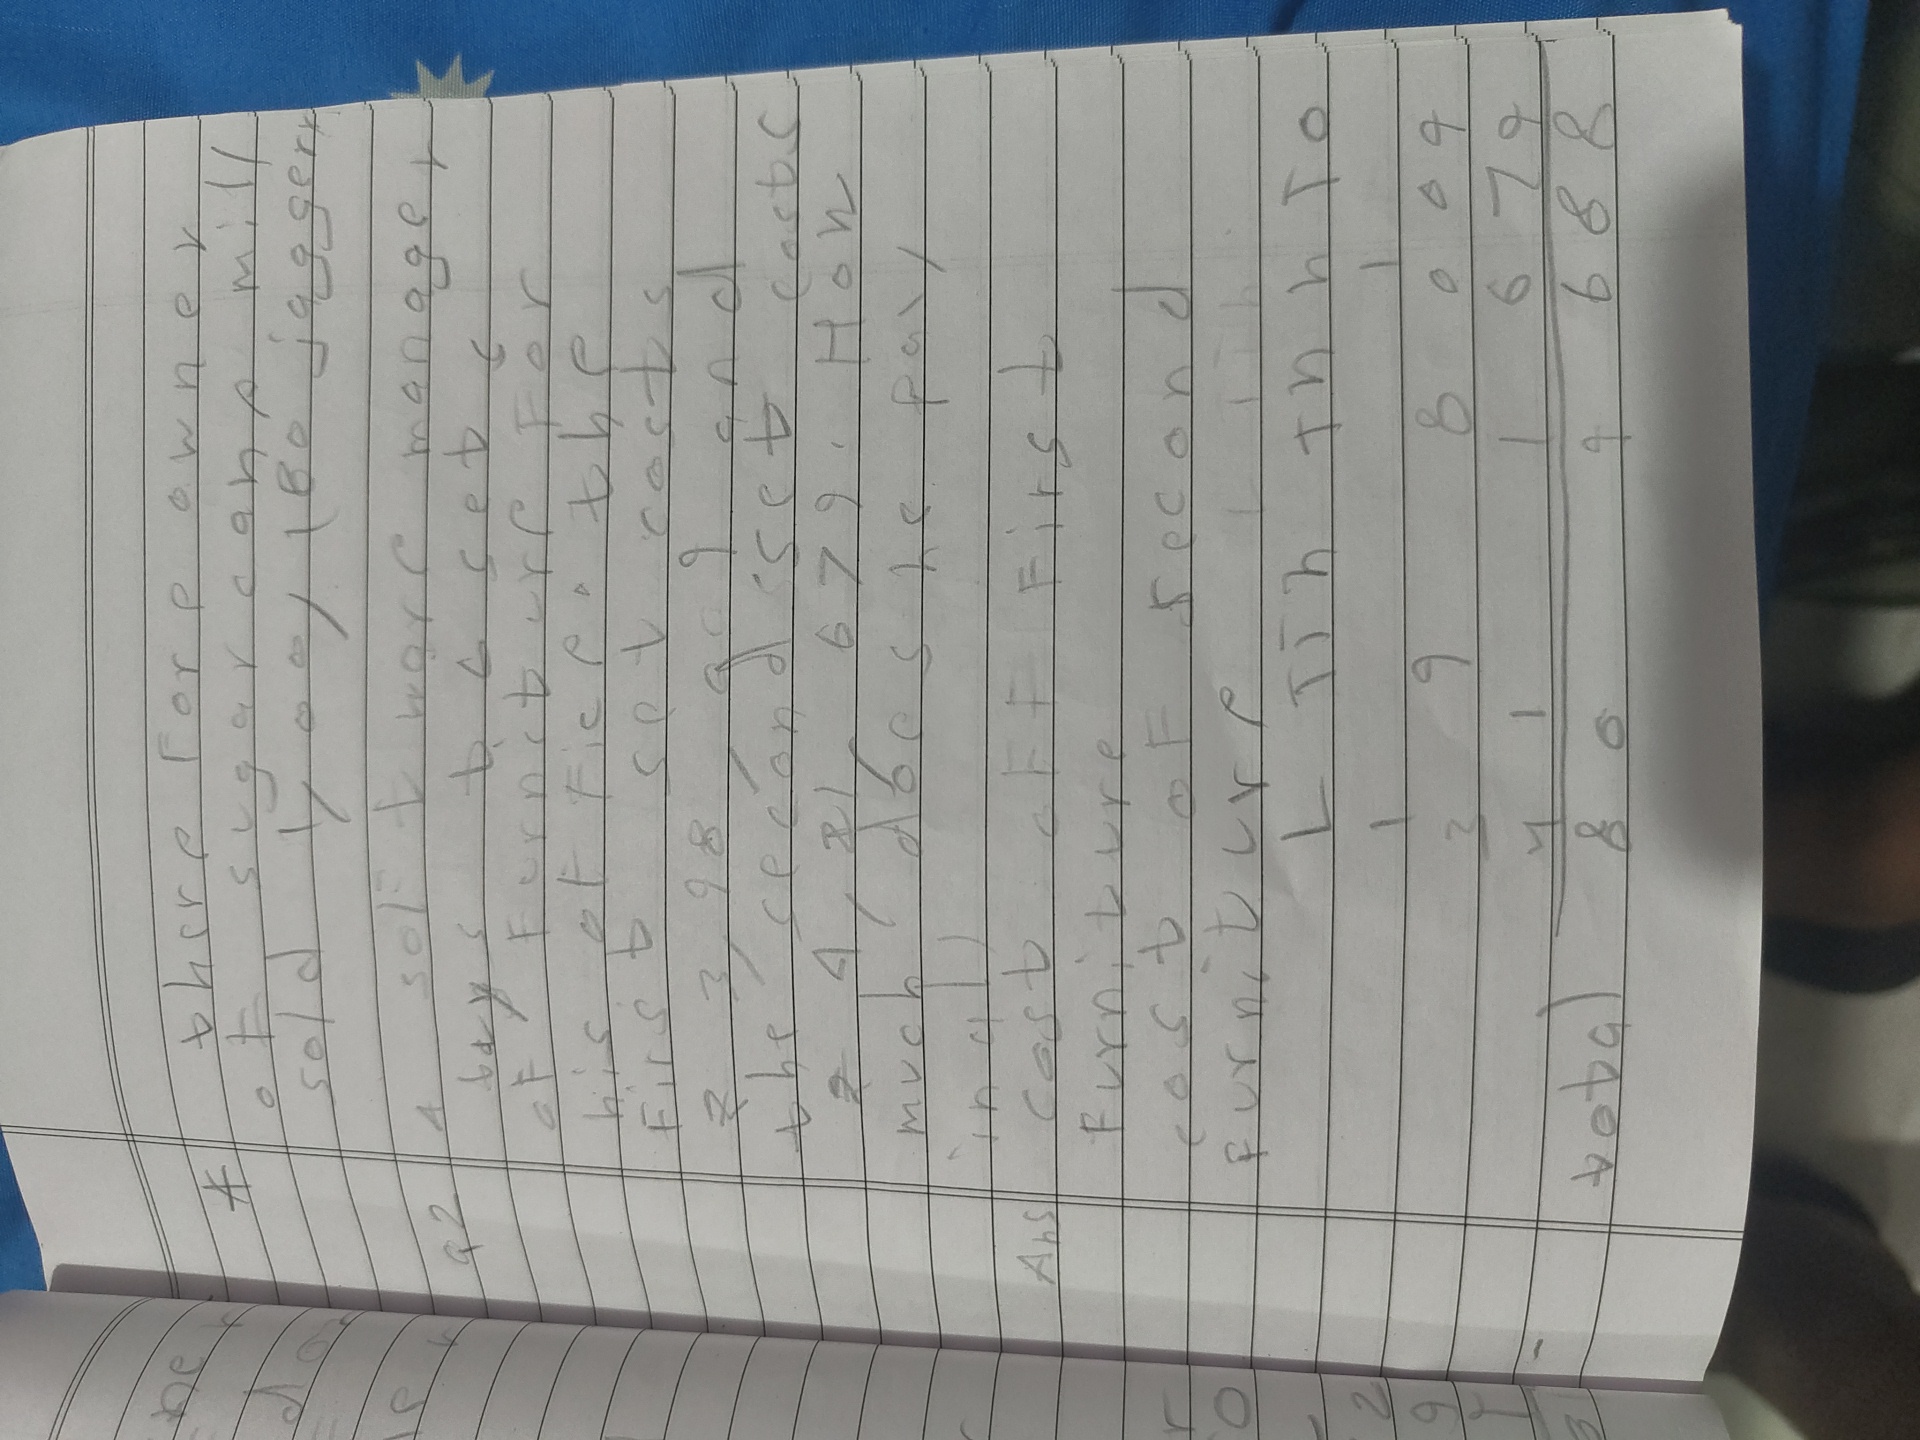 * there Fore owner
of sugarcane mill
sold 4,00,180 jaggery
Q2 A software manager
buys two sets
of Furniture For
his office. the
First set costs
₹ 3,98,009 and
the second set costs
₹ 4,81,679. How
much does he pay
in all
Ans Cost of First
furniture
Cost of second
furniture
L TTh Th H T O
1 1 1
3 9 8 0 0 9
4 1 1 6 7 9
total 8 0 9 6 8 8